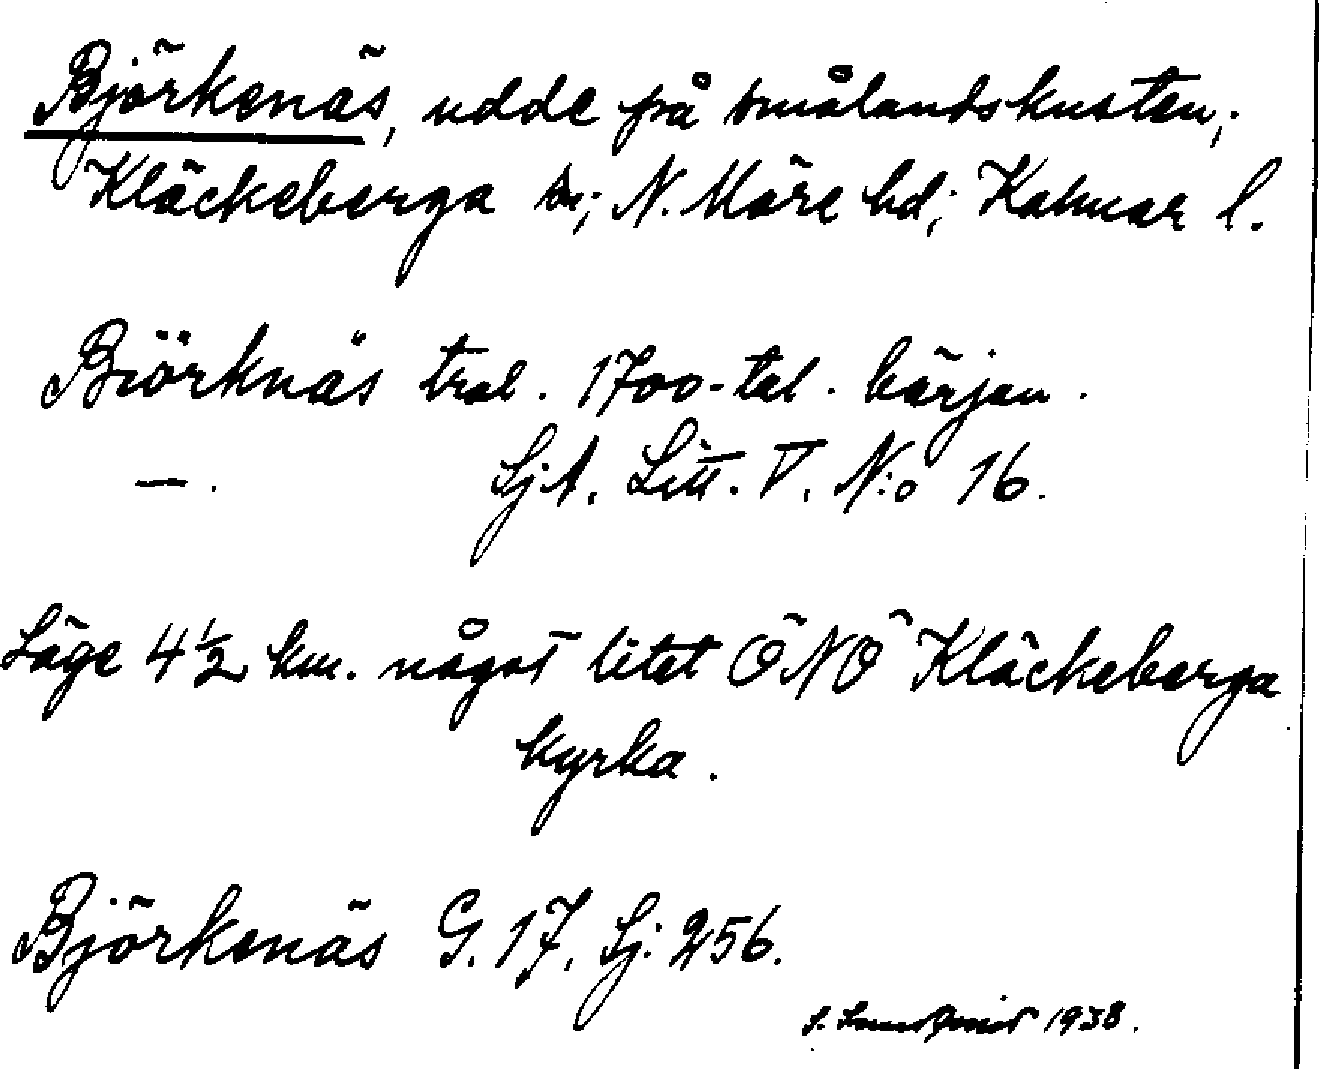 Björkenäs, udde på smålandskusten,
Kläckeberga sn; N. Möre hd; Kalmar l.
Biörknäs tral. 1700-tal. början.
—. SjA. Litt. V. N:o 16.
Läge 4 1/2 km. något litet ÖNÖ Kläckeberga
kyrka.
Björkenäs G. 17, Sj: 256.
1938.